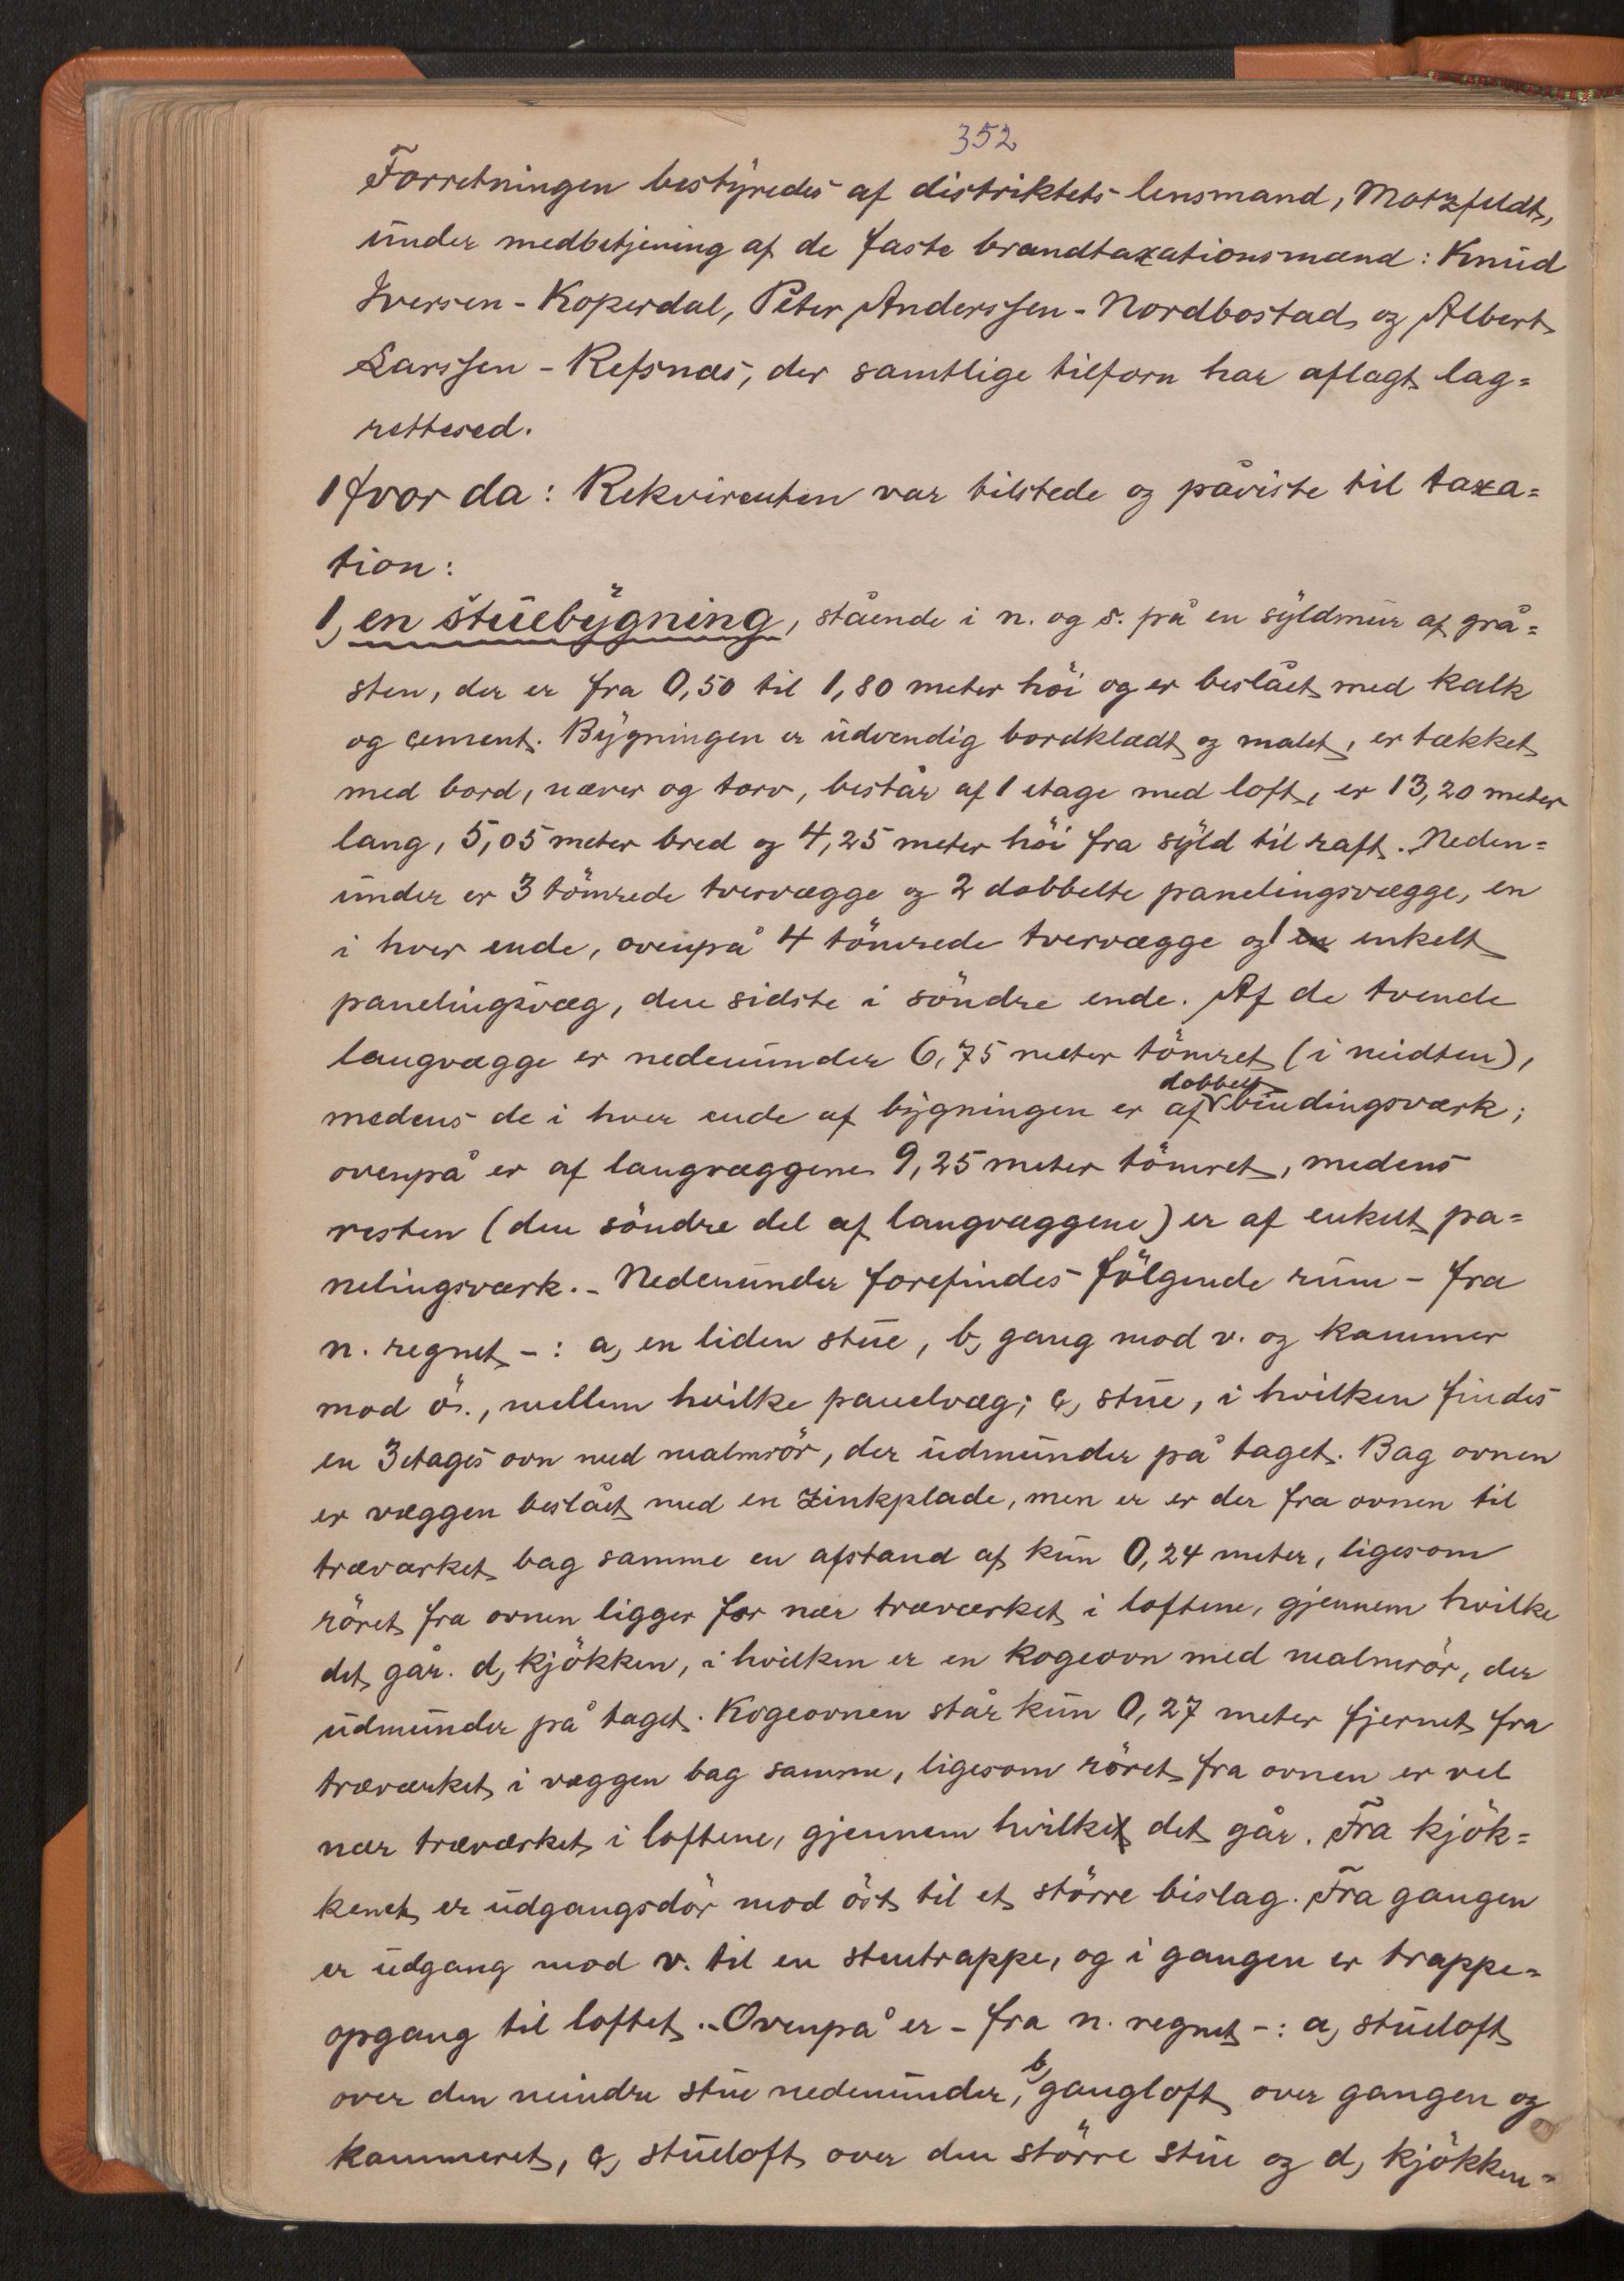 352
Forretningen bestyredes af distriktets lensmand, Motzfeldt,
under medbetjening af de faste brandtaxationsmænd: Knud
Iversen - Koperdal, Peter Anderssen - Nordbostad og Albert
Larssen - Refsnæs, der samtlige tilforn har aflagt lag=
rettesed.
Hvor da: Rekvirenten var tilstede og påviste til taxa=
tion:
1, en stuebygning, stående i n. og s. på en syldmur af grå=
sten, der er fra 0,50 til 1,80 meter höi og er beslået med kalk
og cement. Bygningen er udvendig bordklædt og malet, er tækket
med bord, næver og torv, består af 1 etage med loft, er 13,20 meter
lang, 5,05 meter bred og 4,25 meter höi fra syld til raft. Neden=
under er 3 tömrede tvervægge og 2 dobbelte panelingsvægge, en
i hver ende, ovenpå 4 tömrede tvervægge og 1 en enkelt
panelingsvæg, den sidste i söndre ende. Af de tvende
langvægge er nedenunder 6,75 meter tömret (i midten),
medens de i hver ende af bygningen er af dobbelt bindingsværk;
ovenpå er af langvæggene 9,25 meter tömret, medens
resten (den söndre del af langvæggene) er af enkelt pa=
nelingsværk. - Nedenunder forefindes fölgende rum - fra
n. regnet -: a, en liden stue, b, gang mod v. og kammer
mod ö., mellem hvilke panelvæg; c, stue, i hvilken findes
en 3 etages ovn med malmrör, der udmunder på taget. Bag ovnen
er væggen beslået med en zinkplade, men er er der fra ovnen til
træværket bag samme en afstand af kun 0,24 meter, ligesom
röret fra ovnen ligger for nær træværket i loftene, gjennem hvilke
det går. d, kjökken, i hvilken er en kogeovn med malmrör, der
udmunder på taget. Kogeovnen står kun 0,27 meter fjernet fra
træværket i væggen bag samme, ligesom röret fra ovnen er vel
nær træværket i loftene, gjennem hvilket det går. Fra kjök=
kenet er udgangsdör mod öst til et större bislag. Fra gangen
er udgang mod v. til en stentrappe, og i gangen er trappe=
opgang til loftet. - Ovenpå er - fra n. regnet -: a, stueloft
over den mindre stue nedenunder, b, gangloft over gangen og
kammeret, c, stueloft over den större stue og d, kjökken=